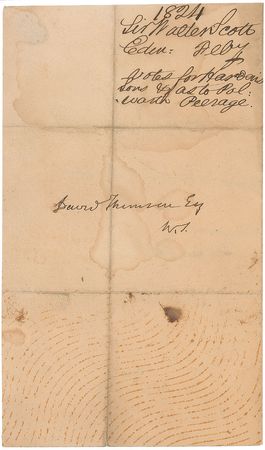 1824
Sir Walter Scott
Edin: Feby
Votes for Harden's
sons & as to Pol:
warth Peerage.
David Thomson Esq
W.S.